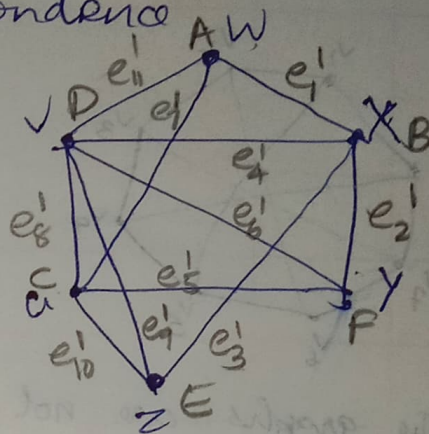 ondence
A W
e₁₁' e₁'
V D e₇' X B
e₄'
e₈' e₆' e₂'
C e₅' Y
G F
e₁₀' e₉' e₃'
Z E